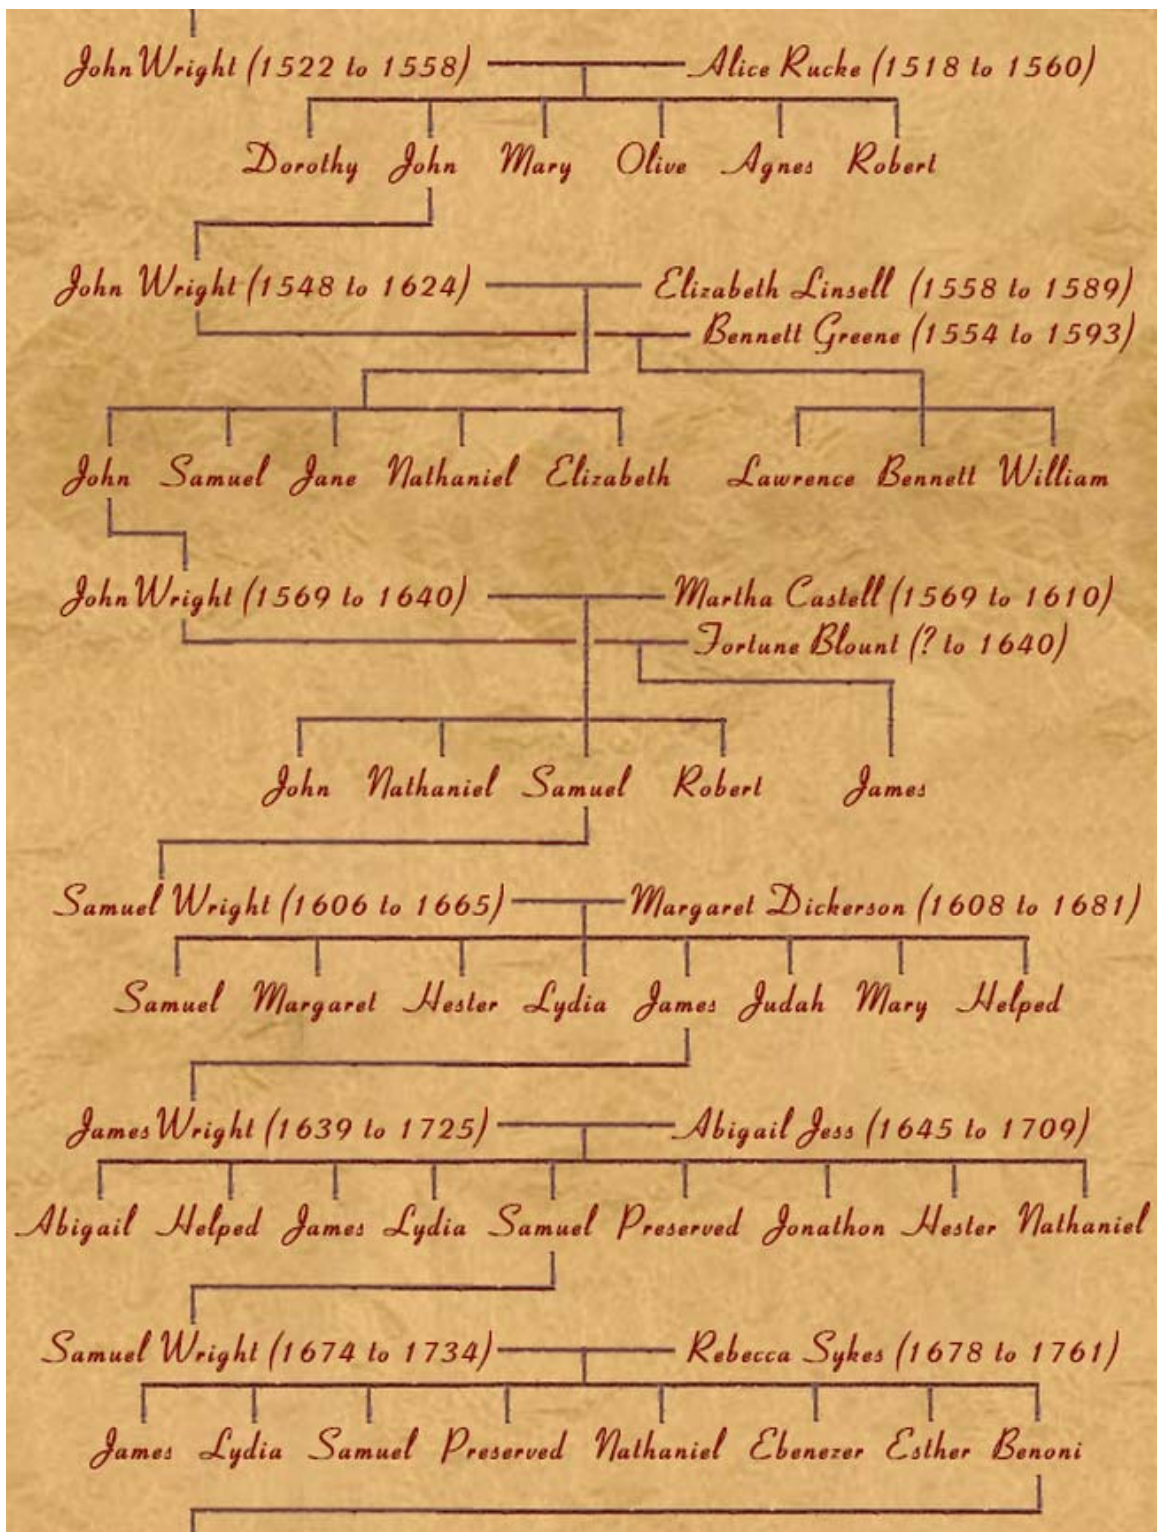 John Wright (1522 to 1558) Alice Rucke (1518 to 1560)
Dorothy John Mary Olive Agnes Robert
John Wright (1548 to 1624) Elizabeth Linsell (1558 to 1589)
Bennett Greene (1554 to 1593)
John Samuel Jane Nathaniel Elizabeth Lawrence Bennett William
John Wright (1569 to 1640) Martha Castell (1569 to 1610)
Fortune Blount (? to 1640)
John Nathaniel Samuel Robert James
Samuel Wright (1606 to 1665) Margaret Dickerson (1608 to 1681)
Samuel Margaret Hester Lydia James Judah Mary Helped
James Wright (1639 to 1725) Abigail Jess (1645 to 1709)
Abigail Helped James Lydia Samuel Preserved Jonathon Hester Nathaniel
Samuel Wright (1674 to 1734) Rebecca Sykes (1678 to 1761)
James Lydia Samuel Preserved Nathaniel Ebenezer Esther Benoni